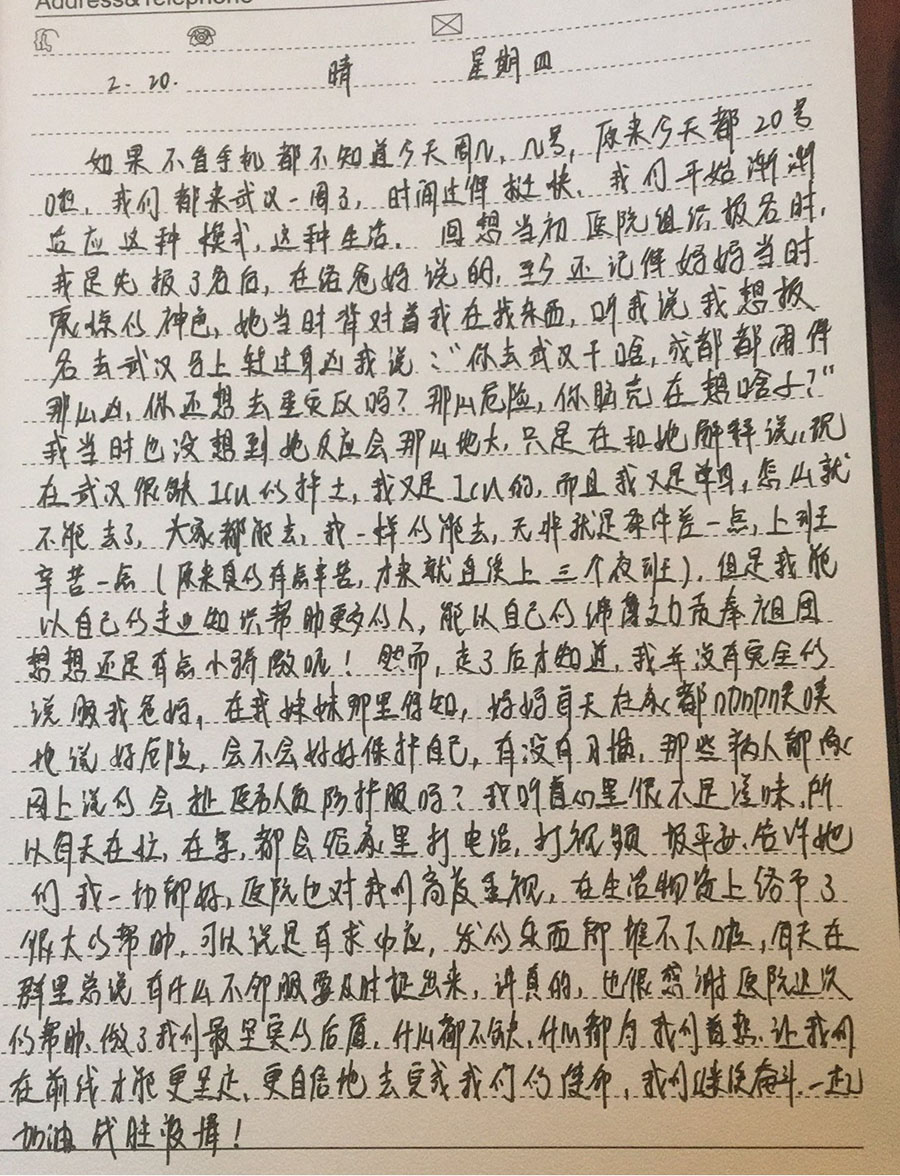 Address&Telephone
2.20. 晴 星期四
如果不看手机都不知道今天周几、几号,原来今天都20号
啦,我们都来武汉一周了,时间过得挺快,我们开始渐渐
适应这种模式,这种生活。回想当初医院组织报名时,
我是先报了名后,在给爸妈说的,至今还记得妈妈当时
震惊的神色,她当时背对着我在找东西,听我说我想报
名去武汉马上转过身凶我说:“你去武汉干啥,成都都闹得
那么凶,你还想去重灾区吗?那么危险,你脑壳在想啥子?”
我当时也没想到她反应会那么地大,只是在和她解释说,现
在武汉很缺ICU的护士,我又是ICU的,而且我又是单身,怎么就
不能去了,大家都能去,我一样的能去,无非就是条件差一点,上班
辛苦一点(原来真的有点辛苦,才来就连续上三个夜班),但是我能
以自己的专业知识帮助更多的人,能以自己的绵薄之力贡奉祖国
想想还是有点小骄傲呢!然而,走了后才知道,我并没有完全的
说服我爸妈,在我妹妹那里得知,妈妈每天在家都叨叨叨
地说好危险,会不会好好保护自己,有没有口罩,那些病人都像
网上说的会扯医务人员防护服吗?我听着心里很不是滋味,所
以每天在忙,在累,都会给家里打电话,打视频报平安、告诉她
们我一切都好,医院也对我们高度重视,在生活物资上给予了
很大的帮助,可以说是有求必应,发的东西都堆不下啦,每天在
群里总说有什么不舒服要及时提出来,讲真的,也很感谢医院这次
的帮助、做了我们最坚实的后盾,什么都不缺,什么都为我们着想、让我们
在前线才能更坚定、更自信地去完成我们的使命,我们继续奋斗、一起
加油战胜疫情!